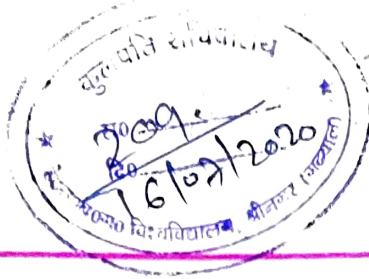 कुलपति सचिवालय
दि0
16/07/2020
विश्वविद्यालय, श्रीनगर (गढ़वाल)